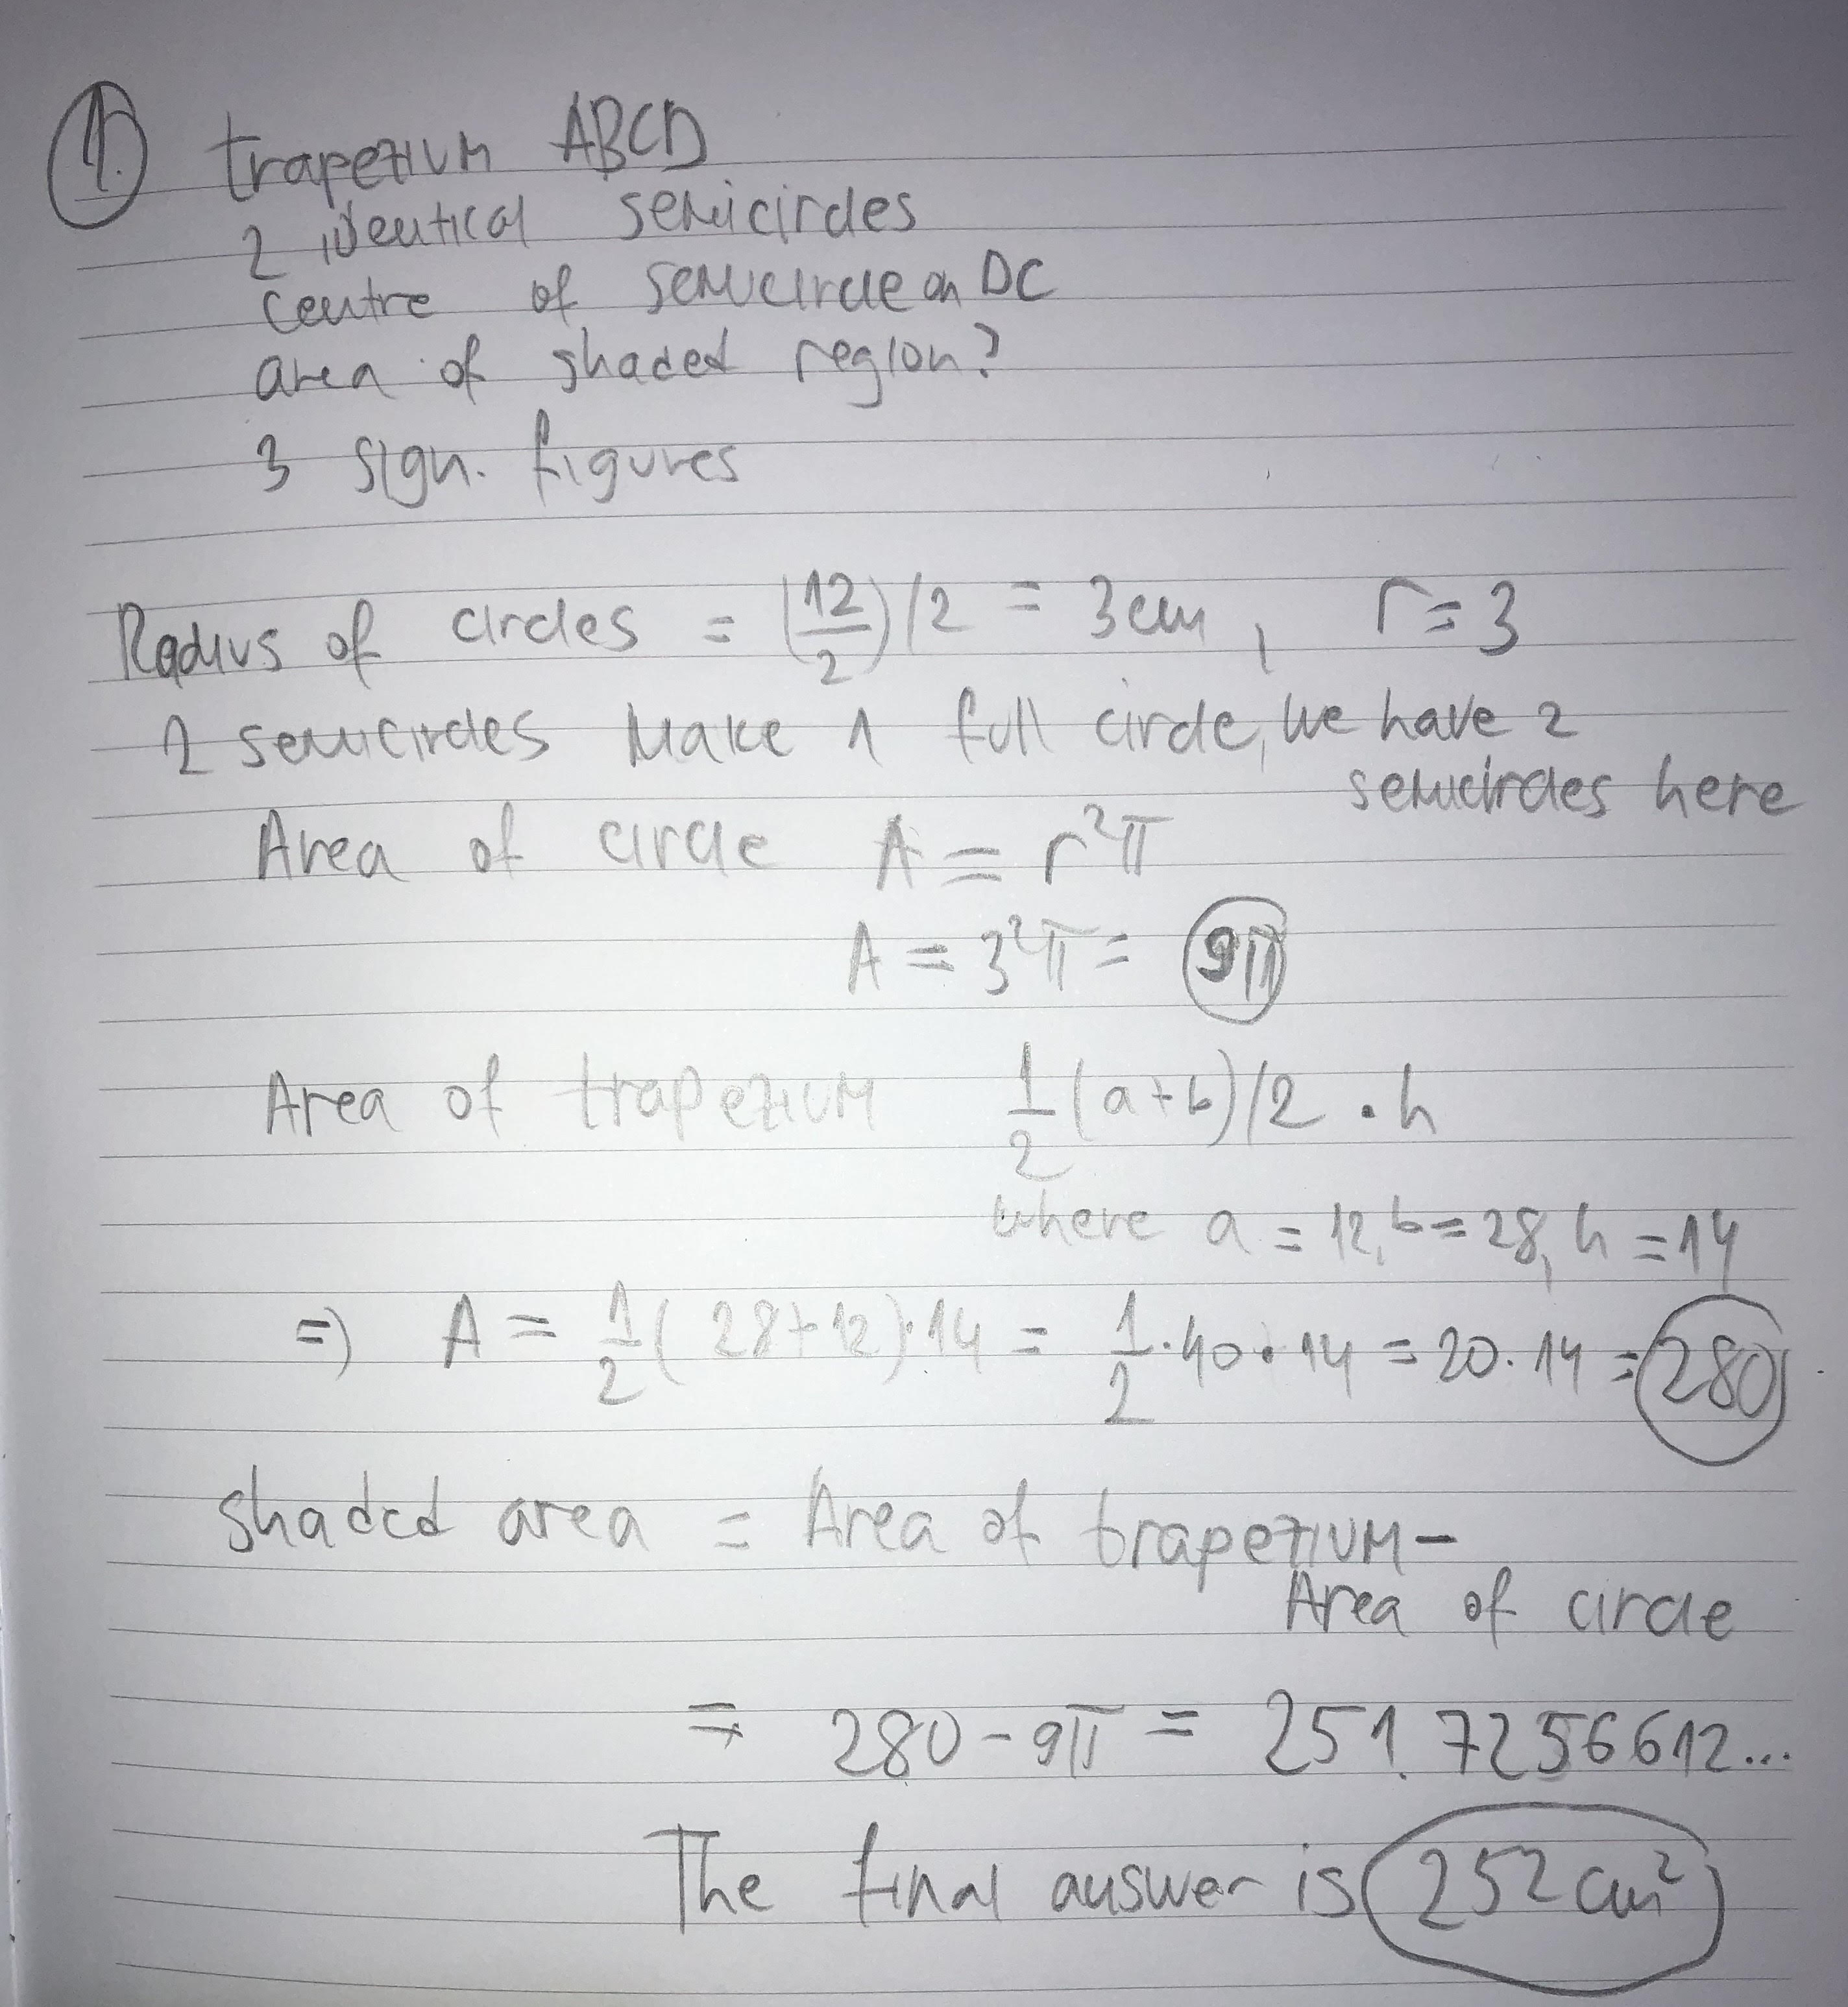 1. trapezium ABCD
2 identical semicircles
centre of semicircle on DC
area of shaded region?
3 sign. figures
Radius of circles = (12/2)/2 = 3cm, r=3
2 semicircles make 1 full circle, we have 2
semicircles here
Area of circle A = r²π
A = 3²π = 9π
Area of trapezium 1/2 (a+b)/2 · h
where a = 12, b = 28, h = 14
=> A = 1/2 (28+12)·14 = 1/2 · 40 · 14 = 20 · 14 = 280
shaded area = Area of trapezium -
Area of circle
= 280 - 9π = 251.7256612...
The final answer is 252 cm²